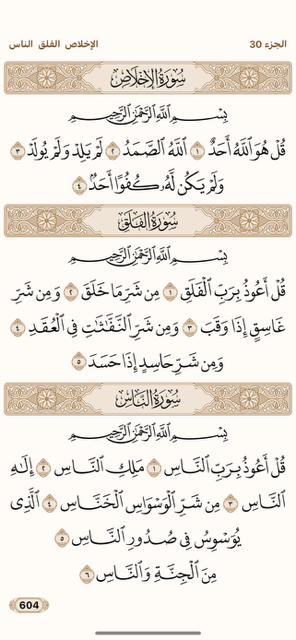 الجزء 30
الإخلاص الفلق الناس
سُورَةُ الإِخْلَاصِ
بِسْمِ اللَّهِ الرَّحْمَٰنِ الرَّحِيمِ
قُلْ هُوَ اللَّهُ أَحَدٌ ١ اللَّهُ الصَّمَدُ ٢ لَمْ يَلِدْ وَلَمْ يُولَدْ ٣
وَلَمْ يَكُن لَّهُ كُفُوًا أَحَدٌ ٤
سُورَةُ الْفَلَقِ
بِسْمِ اللَّهِ الرَّحْمَٰنِ الرَّحِيمِ
قُلْ أَعُوذُ بِرَبِّ الْفَلَقِ ١ مِن شَرِّ مَا خَلَقَ ٢ وَمِن شَرِّ
غَاسِقٍ إِذَا وَقَبَ ٣ وَمِن شَرِّ النَّفَّاثَاتِ فِي الْعُقَدِ ٤
وَمِن شَرِّ حَاسِدٍ إِذَا حَسَدَ ٥
سُورَةُ النَّاسِ
بِسْمِ اللَّهِ الرَّحْمَٰنِ الرَّحِيمِ
قُلْ أَعُوذُ بِرَبِّ النَّاسِ ١ مَلِكِ النَّاسِ ٢ إِلَٰهِ
النَّاسِ ٣ مِن شَرِّ الْوَسْوَاسِ الْخَنَّاسِ ٤ الَّذِي
يُوَسْوِسُ فِي صُدُورِ النَّاسِ ٥
مِنَ الْجِنَّةِ وَالنَّاسِ ٦
604